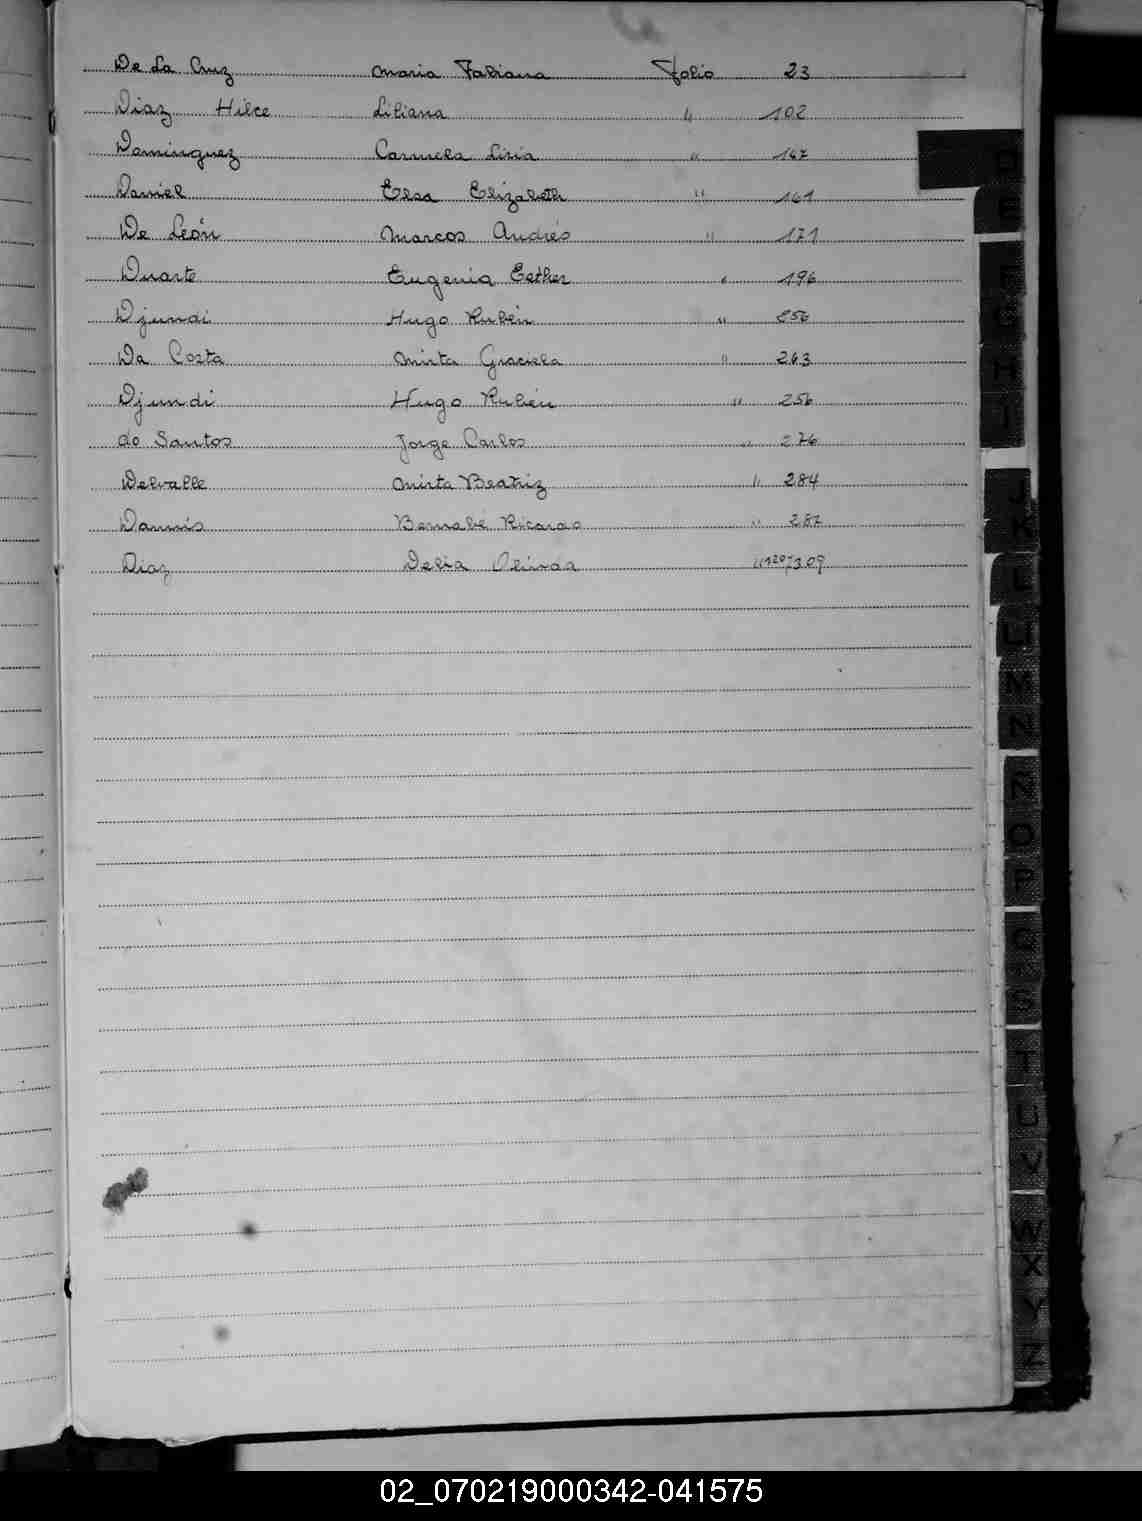 De La Cruz Maria Fabiana Folio 23
Diaz Hilce Liliana " 102
Dominguez Carmela Liria " 147
Daniel Elsa Elizabeth " 161
De León Marcos Andrés " 171
Duarte Eugenia Esther " 196
Djundi Hugo Rubén " 256
Da Costa Mirta Graciela " 263
Djundi Hugo Rubén " 256
do Santos Jorge Carlos " 276
Delvalle Mirta Beatriz " 284
Dannis Bernabé Ricardo " 287
Diaz Delia Olinda " 309
D
E
F
G
H
I
J
K
L
LL
M
N
Ñ
O
P
Q
S
T
U
V
W
X
Y
Z
02_070219000342-041575